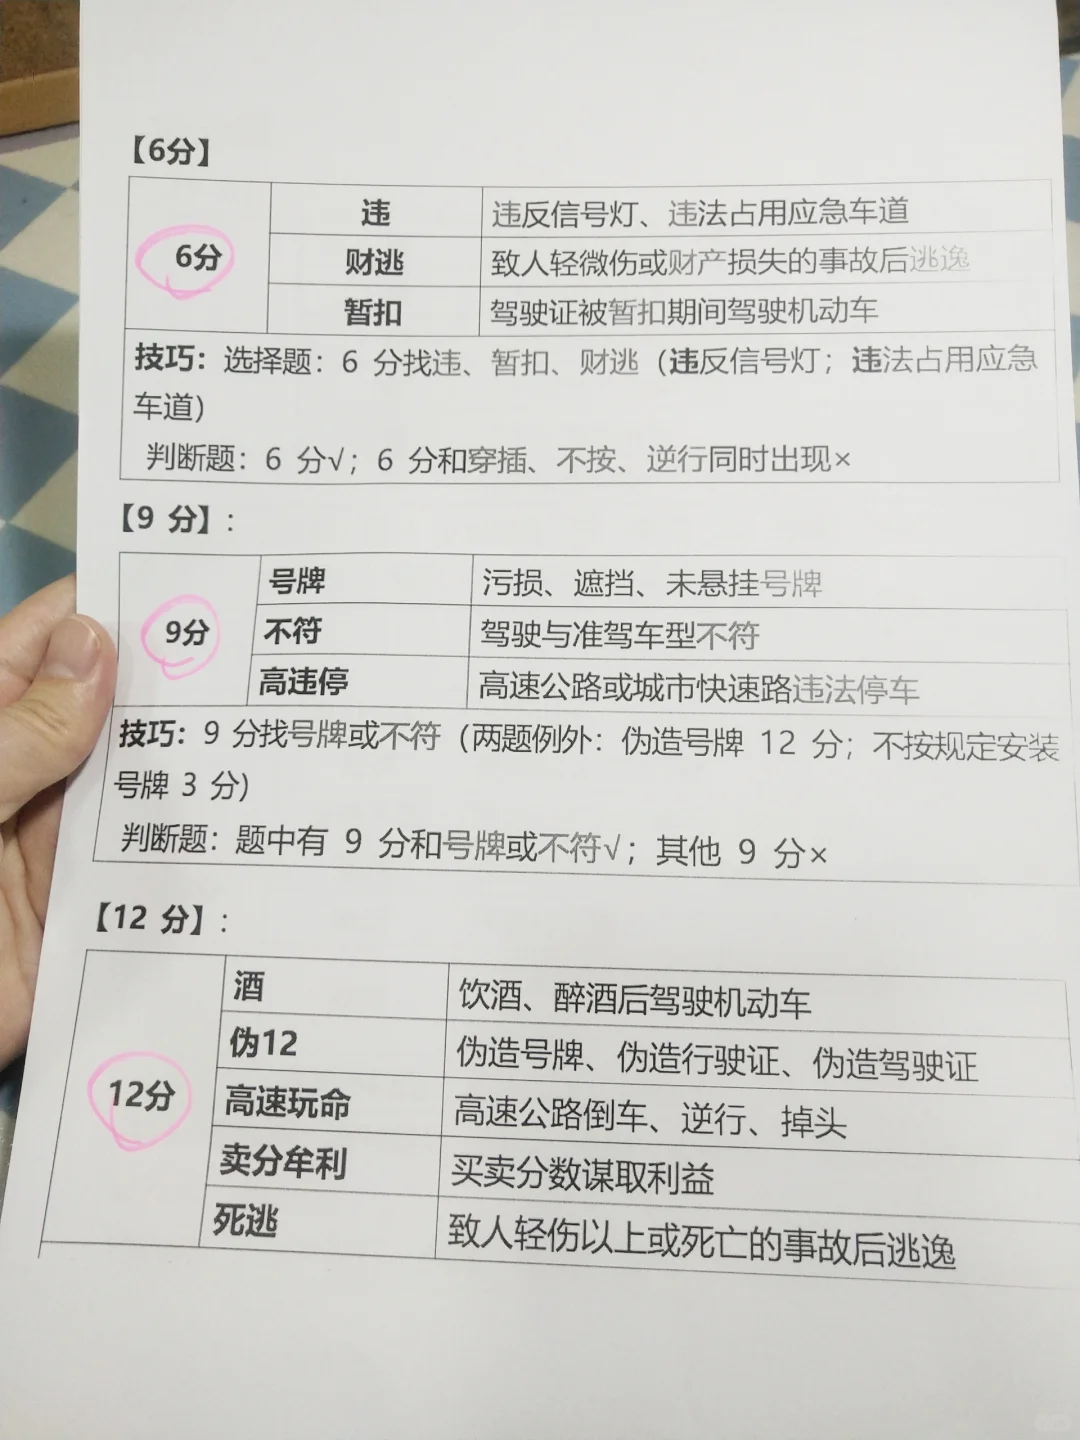 【6分】
6分
违 违反信号灯、违法占用应急车道
财逃 致人轻微伤或财产损失的事故后逃逸
暂扣 驾驶证被暂扣期间驾驶机动车
技巧：选择题：6 分找违、暂扣、财逃（违反信号灯；违法占用应急
车道）
判断题：6 分√；6 分和穿插、不按、逆行同时出现×
【9 分】：
9分
号牌 污损、遮挡、未悬挂号牌
不符 驾驶与准驾车型不符
高违停 高速公路或城市快速路违法停车
技巧：9 分找号牌或不符（两题例外：伪造号牌 12 分；不按规定安装
号牌 3 分）
判断题：题中有 9 分和号牌或不符√；其他 9 分×
【12 分】：
12分
酒 饮酒、醉酒后驾驶机动车
伪12 伪造号牌、伪造行驶证、伪造驾驶证
高速玩命 高速公路倒车、逆行、掉头
卖分牟利 买卖分数谋取利益
死逃 致人轻伤以上或死亡的事故后逃逸